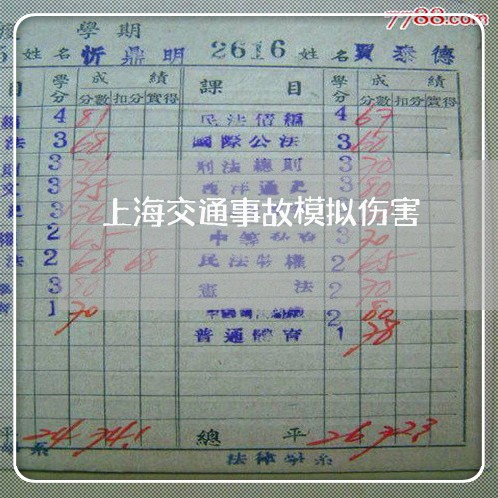 7788.com
學期
姓名 忻鼎明 2616 姓名 賈泰德
目 學分 成績 課目 學分 成績
分數 扣分 實得 分數 扣分 實得
4 81 民法債編 4 67
法 3 68 國際公法 3 60
3 刑法總則 3 70
3 75 西洋通史 3 80
上海交通事故模拟伤害
2 3 70
法 2 68 68 民法物權 2 65
3 80 憲法 2 70
1 70 2 80
普通體育 1 78
平 24 74.1 總平 26 72.3
系 法律學系